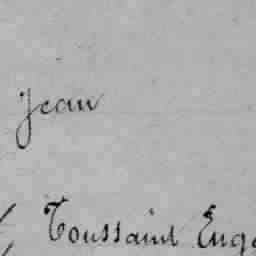 Jean
Toussaint